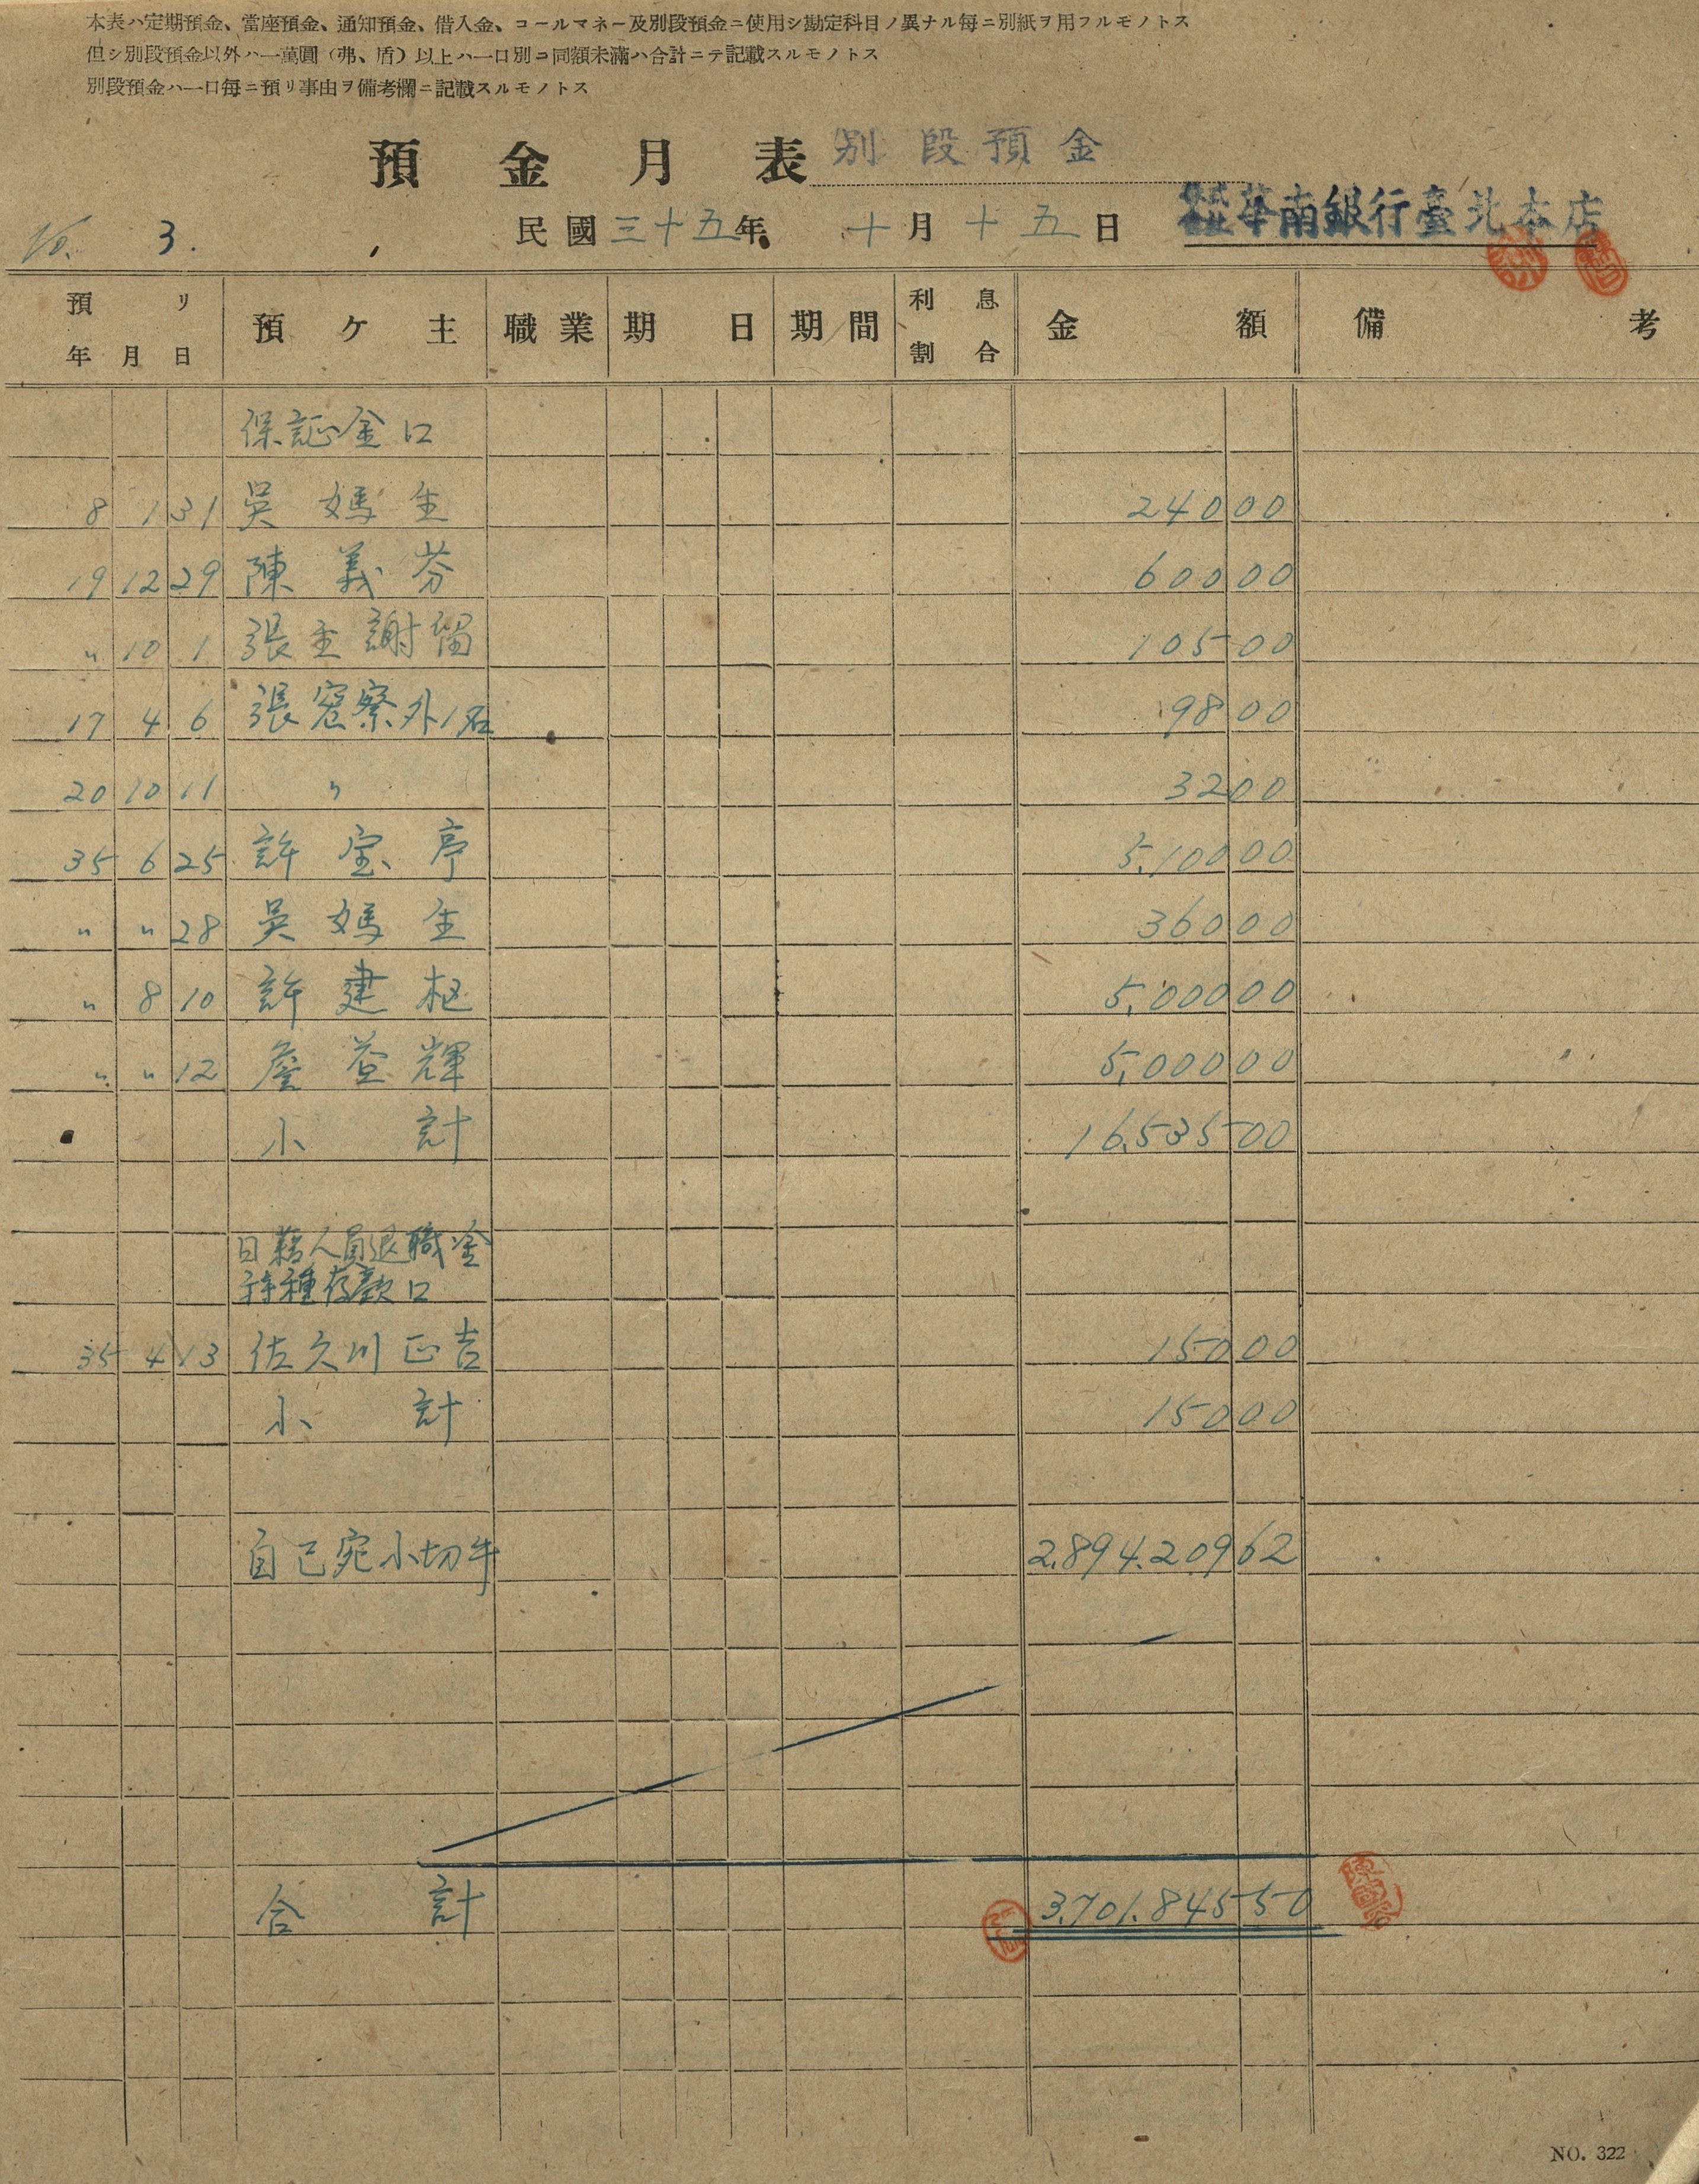 本表ハ定期預金、當座預金、通知預金、借入金、コールマネー及別段預金ニ使用シ勘定科目ノ異ナル每ニ別紙ヲ用フルモノトス
但シ別段預金以外ハ一萬圓（弗、盾）以上ハ一口別コ同額未滿ハ合計ニテ記載スルモノトス
別段預金ハ一口每ニ預リ事由ヲ備考欄ニ記載スルモノトス
預金月表 別段預金
No. 3. 民國三十五年 十月十五日 華南銀行臺北本店
預リ年月日 預ケ主 職業 期日 期間 利息割合 金額 備考
保証金口
8 1 31 吳媽生 240 00
19 12 29 陳義芬 600 00
〃 10 1 張王謝留 105 00
17 4 6 張寬察外1名 98 00
20 10 11 〃 32 00
35 6 25 許宝亭 5,100 00
〃 〃 28 吳媽生 360 00
〃 8 10 許建枢 5,000 00
〃 〃 12 詹益輝 5,000 00
小計 16,535 00
日籍人員退職金
特種存款口
35 4 13 佐久川正吉 150 00
小計 150 00
自己宛小切手 2,894,209 62
合計 3,701,845 50
NO. 322